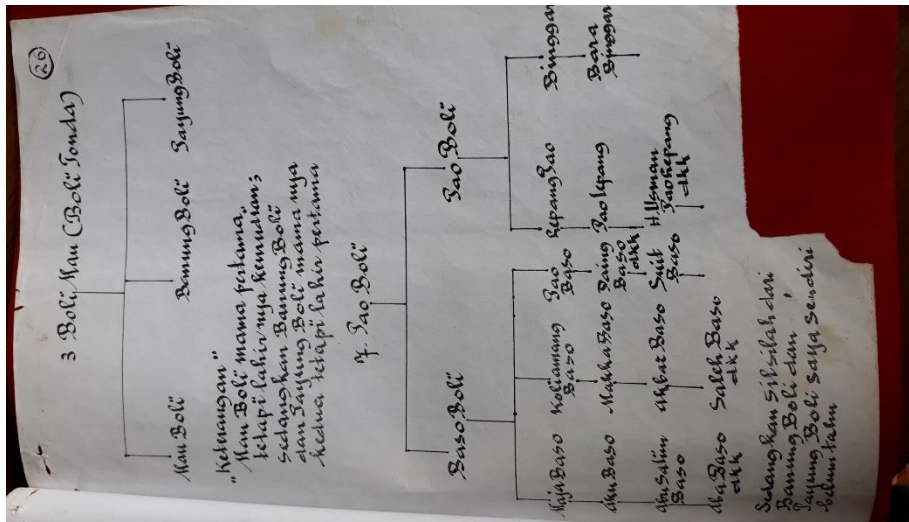 26
3 Boli Mau (Boli Tonda)
Mau Boli Banung Boli Payung Boli
"Keterangan"
Mau Boli mama pertama,
tetapi lahirnya kemudian;
sedangkan Banung Boli
dan Payung Boli mama nya
kedua tetapi lahir pertama
7. Pao Boli
Baso Boli Pao Boli
Maja Baso Koliamang Baso Pao Baso Lepang Pao Binggar
Aku Baso Makha Baso Daing Baso dkk Pao Lepang Bara Binggar
Abu Salim Baso Akbar Baso Suit Baso H. Usman Pao Lepang dkk
Aba Baso dkk Saleh Baso dkk
Sedangkan silsilah dari
Banung Boli dan
Payung Boli saya sendiri
belum tahu